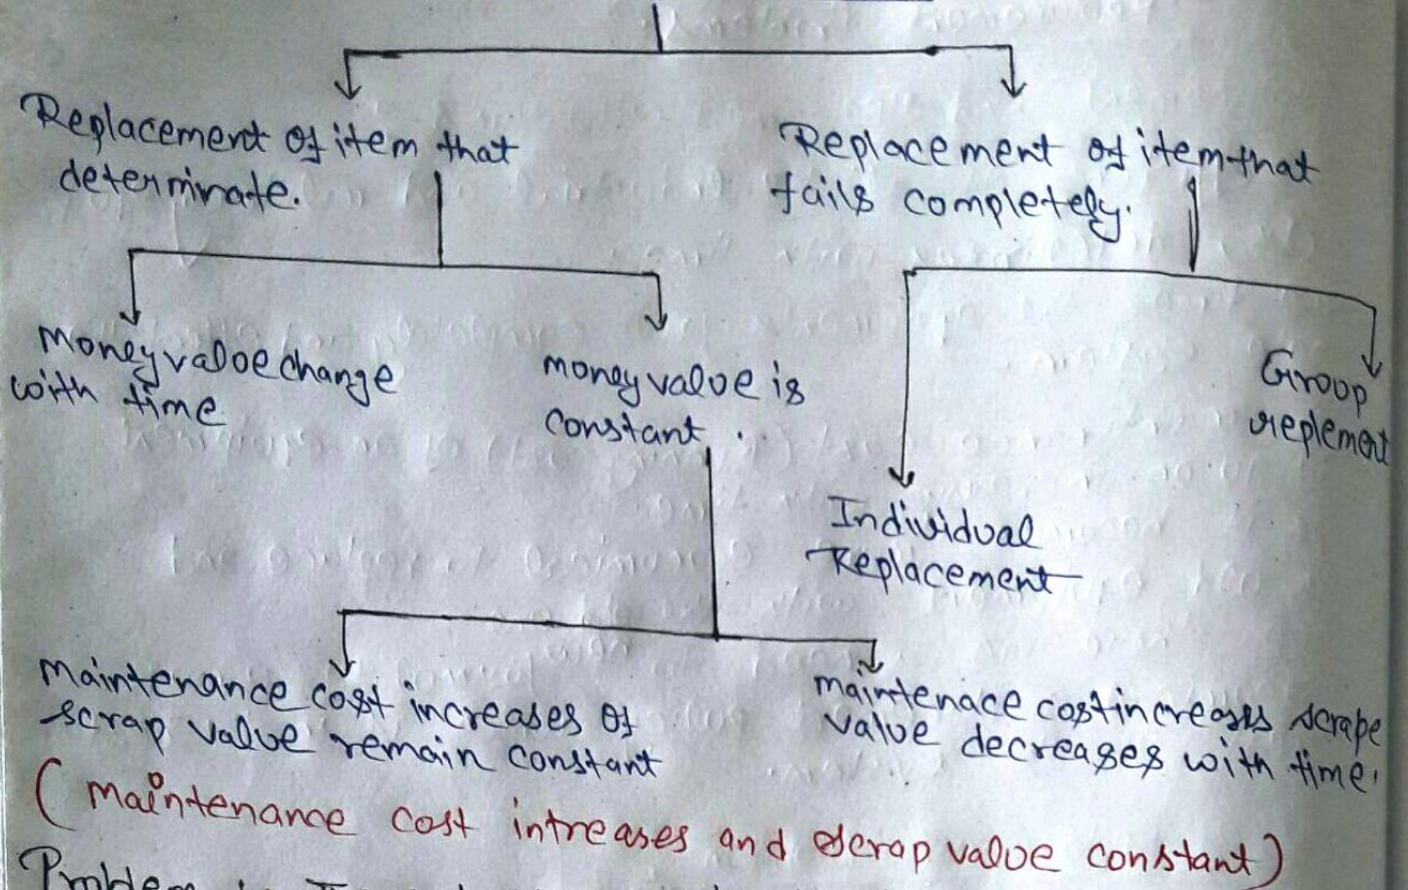 Replacement of item that
determinate.
Replacement of item that
fails completely.
money value change
with time
money value is
constant.
Group
replement
Individual
Replacement
maintenance cost increases of
scrap value remain constant
maintenace cost increases scrape
value decreases with time.
(maintenance cost intreases and scrap value constant)
Problem